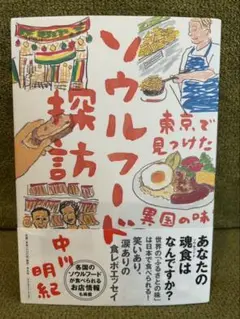 ソウルフード
探訪
東京で
見つけた
異国の味
中川明紀
あなたの
魂食は
なんですか?
世界の「ふるさとの味」
は日本で食べられる!
笑いあり、
涙ありの
食レポエッセイ
各国の
ソウルフード
が食べられる
お店情報
も掲載